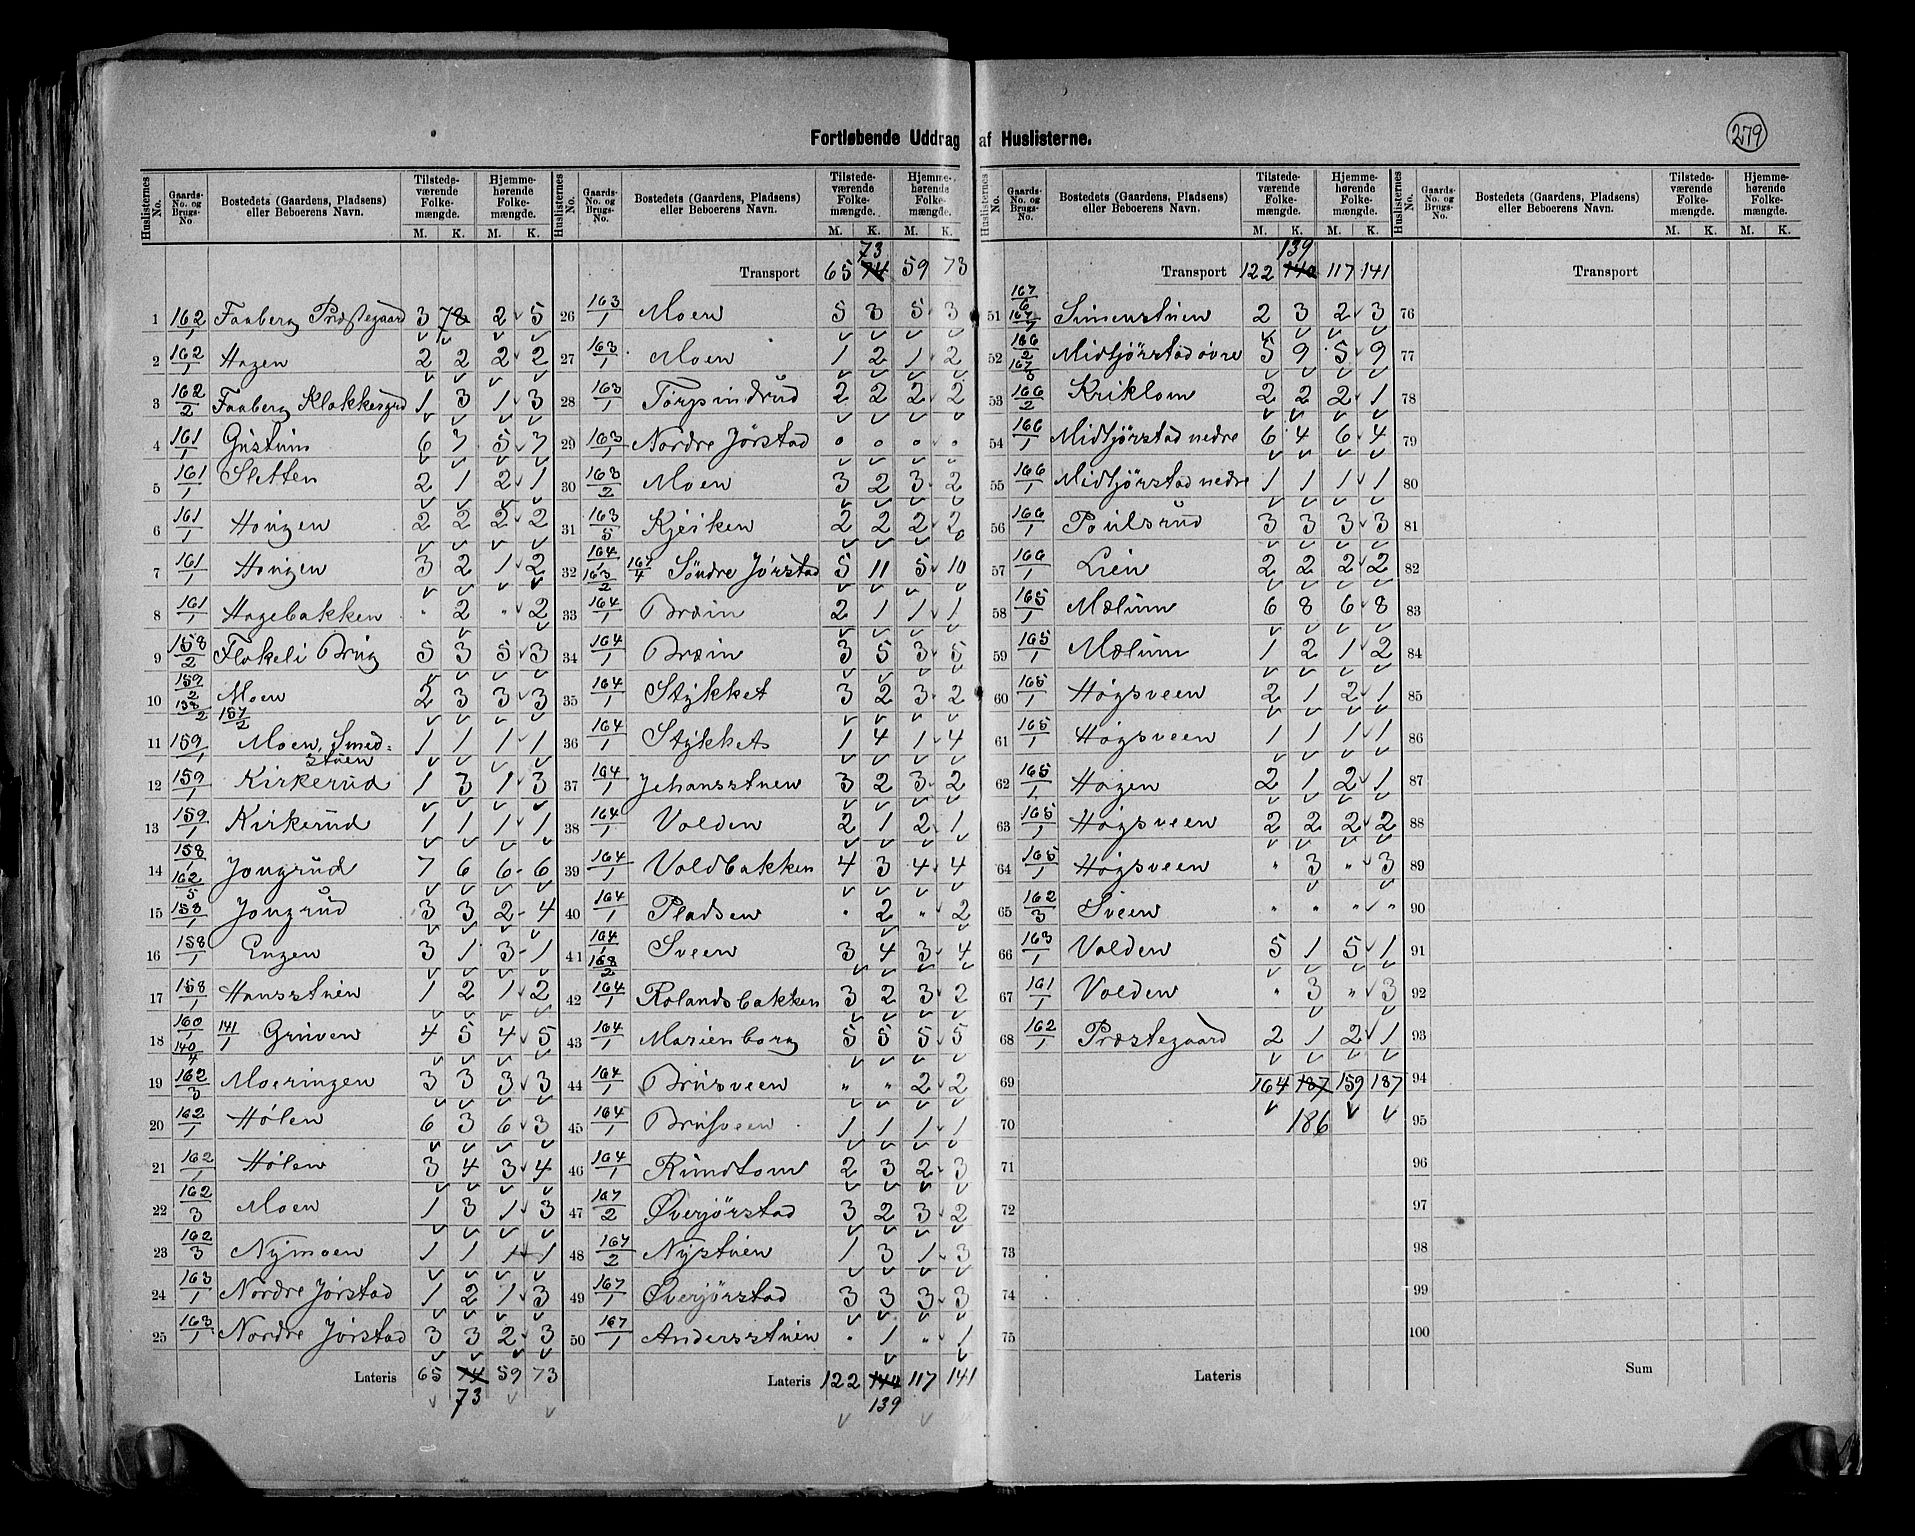 Fortløbende Uddrag af Huslisterne.
279
Huslisternes No. | Gaards-No. og Brugs-No | Bostedets (Gaardens, Pladsens) eller Beboerens Navn. | Tilstedeværende Folkemængde. M. K. | Hjemmehørende Folkemængde. M. K.
1 162/1 Faaberg Præstegaard 3 7 2 5
2 162/1 Hagen 2 2 2 2
3 162/2 Faaberg Klokkergrd 1 3 1 3
4 161/1 Gustum 6 7 5 7
5 161/1 Sletten 2 1 2 1
6 161/1 Haugen 2 2 2 2
7 161/1 Haugen 3 2 1 2
8 161/1 Hagebakken " 2 " 2
9 158/2 Flokeli Brug 5 3 5 3
10 159/2 138/2 157/2 Moen 2 3 3 3
11 159/1 Moen, Smedstuen 1 1 1 1
12 159/1 Kirkerud 1 3 1 3
13 159/1 Kirkerud 1 1 1 1
14 158/1 162/5 Jongrud 7 6 6 6
15 158/1 Jongrud 3 3 2 4
16 158/1 Engen 3 1 3 1
17 158/1 Hansstuen 1 2 1 2
18 160/1 140/4 141/1 Gruven 4 5 4 5
19 162/3 Moeringen 3 3 3 3
20 162/1 Hølen 6 3 6 3
21 162/1 Hølen 3 4 3 4
22 162/3 Moen 1 3 1 3
23 162/3 Nymoen 1 1 1 1
24 163/1 Nordre Jørstad 1 2 1 3
25 163/1 Nordre Jørstad 3 3 2 3
Lateris 65 74 59 73
73
Huslisternes No. | Gaards-No. og Brugs-No. | Bostedets (Gaardens, Pladsens) eller Beboerens Navn. | Tilstedeværende Folkemængde. M. K. | Hjemmehørende Folkemængde. M. K.
73
Transport 65 74 59 73
26 163/1 Moen 5 3 5 3
27 163/1 Moen 1 2 1 2
28 163/1 Torpindrud 2 2 2 2
29 163/1 Nordre Jørstad " " " "
30 163/2 Moen 3 2 3 2
31 163/5 Kjeiken 2 2 2 2
32 164/1 163/2 167/4 Søndre Jørstad 5 11 5 10
33 164/1 Bræin 2 1 1 1
34 164/1 Bræin 3 5 3 5
35 164/1 Stykket 3 2 3 2
36 164/1 Stykket 1 4 1 4
37 164/1 Johansstuen 3 2 3 2
38 164/1 Volden 2 1 2 1
39 164/1 Voldbakken 4 3 4 4
40 164/1 Pladsen " 2 " 2
41 164/1 168/2 Sveen 3 4 3 4
42 164/1 Rolandsbakken 3 2 3 2
43 164/1 Marienborg 5 5 5 5
44 164/1 Brusveen " " 2 2
45 164/1 Brusveen 1 1 1 1
46 164/1 Rundtom 2 3 2 3
47 167/2 Øverjørstad 3 2 3 2
48 167/2 Nystuen 1 3 1 3
49 167/1 Øverjørstad 3 3 3 3
50 167/1 Andersstuen " 1 " 1
Lateris 122 140 117 141
139
Huslisternes No. | Gaards-No. og Brugs-No. | Bostedets (Gaardens, Pladsens) eller Beboerens Navn. | Tilstedeværende Folkemængde. M. K. | Hjemmehørende Folkemængde. M. K.
139
Transport 122 140 117 141
51 167/6 167/7 Simenstuen 2 3 2 3
52 166/2 167/3 Midtjørstad øvre 5 9 5 9
53 166/2 Kriklom 2 2 2 1
54 166/1 Midtjørstad nedre 6 4 6 4
55 166/1 Midtjørstad nedre 1 1 1 1
56 166/1 Poulsrud 3 3 3 3
57 166/1 Lien 2 2 2 2
58 165/1 Mælum 6 8 6 8
59 165/1 Mælum 1 2 1 2
60 165/1 Høgsveen 2 1 2 1
61 165/1 Høgsveen 1 1 1 1
62 165/1 Haugen 2 1 2 1
63 165/1 Høgsveen 2 2 2 2
64 165/1 Høgsveen " 3 " 3
65 162/3 Sveen " " " "
66 163/1 Volden 5 1 5 1
67 161/1 Volden " 3 " 3
68 162/1 Præstegaard 2 1 2 1
69 164 187 159 187
70 186
71
72
73
74
75
Lateris
Huslisternes No. | Gaards-No. og Brugs-No. | Bostedets (Gaardens, Pladsens) eller Beboerens Navn. | Tilstedeværende Folkemængde. M. K. | Hjemmehørende Folkemængde. M. K.
Transport
76
77
78
79
80
81
82
83
84
85
86
87
88
89
90
91
92
93
94
95
96
97
98
99
100
Sum